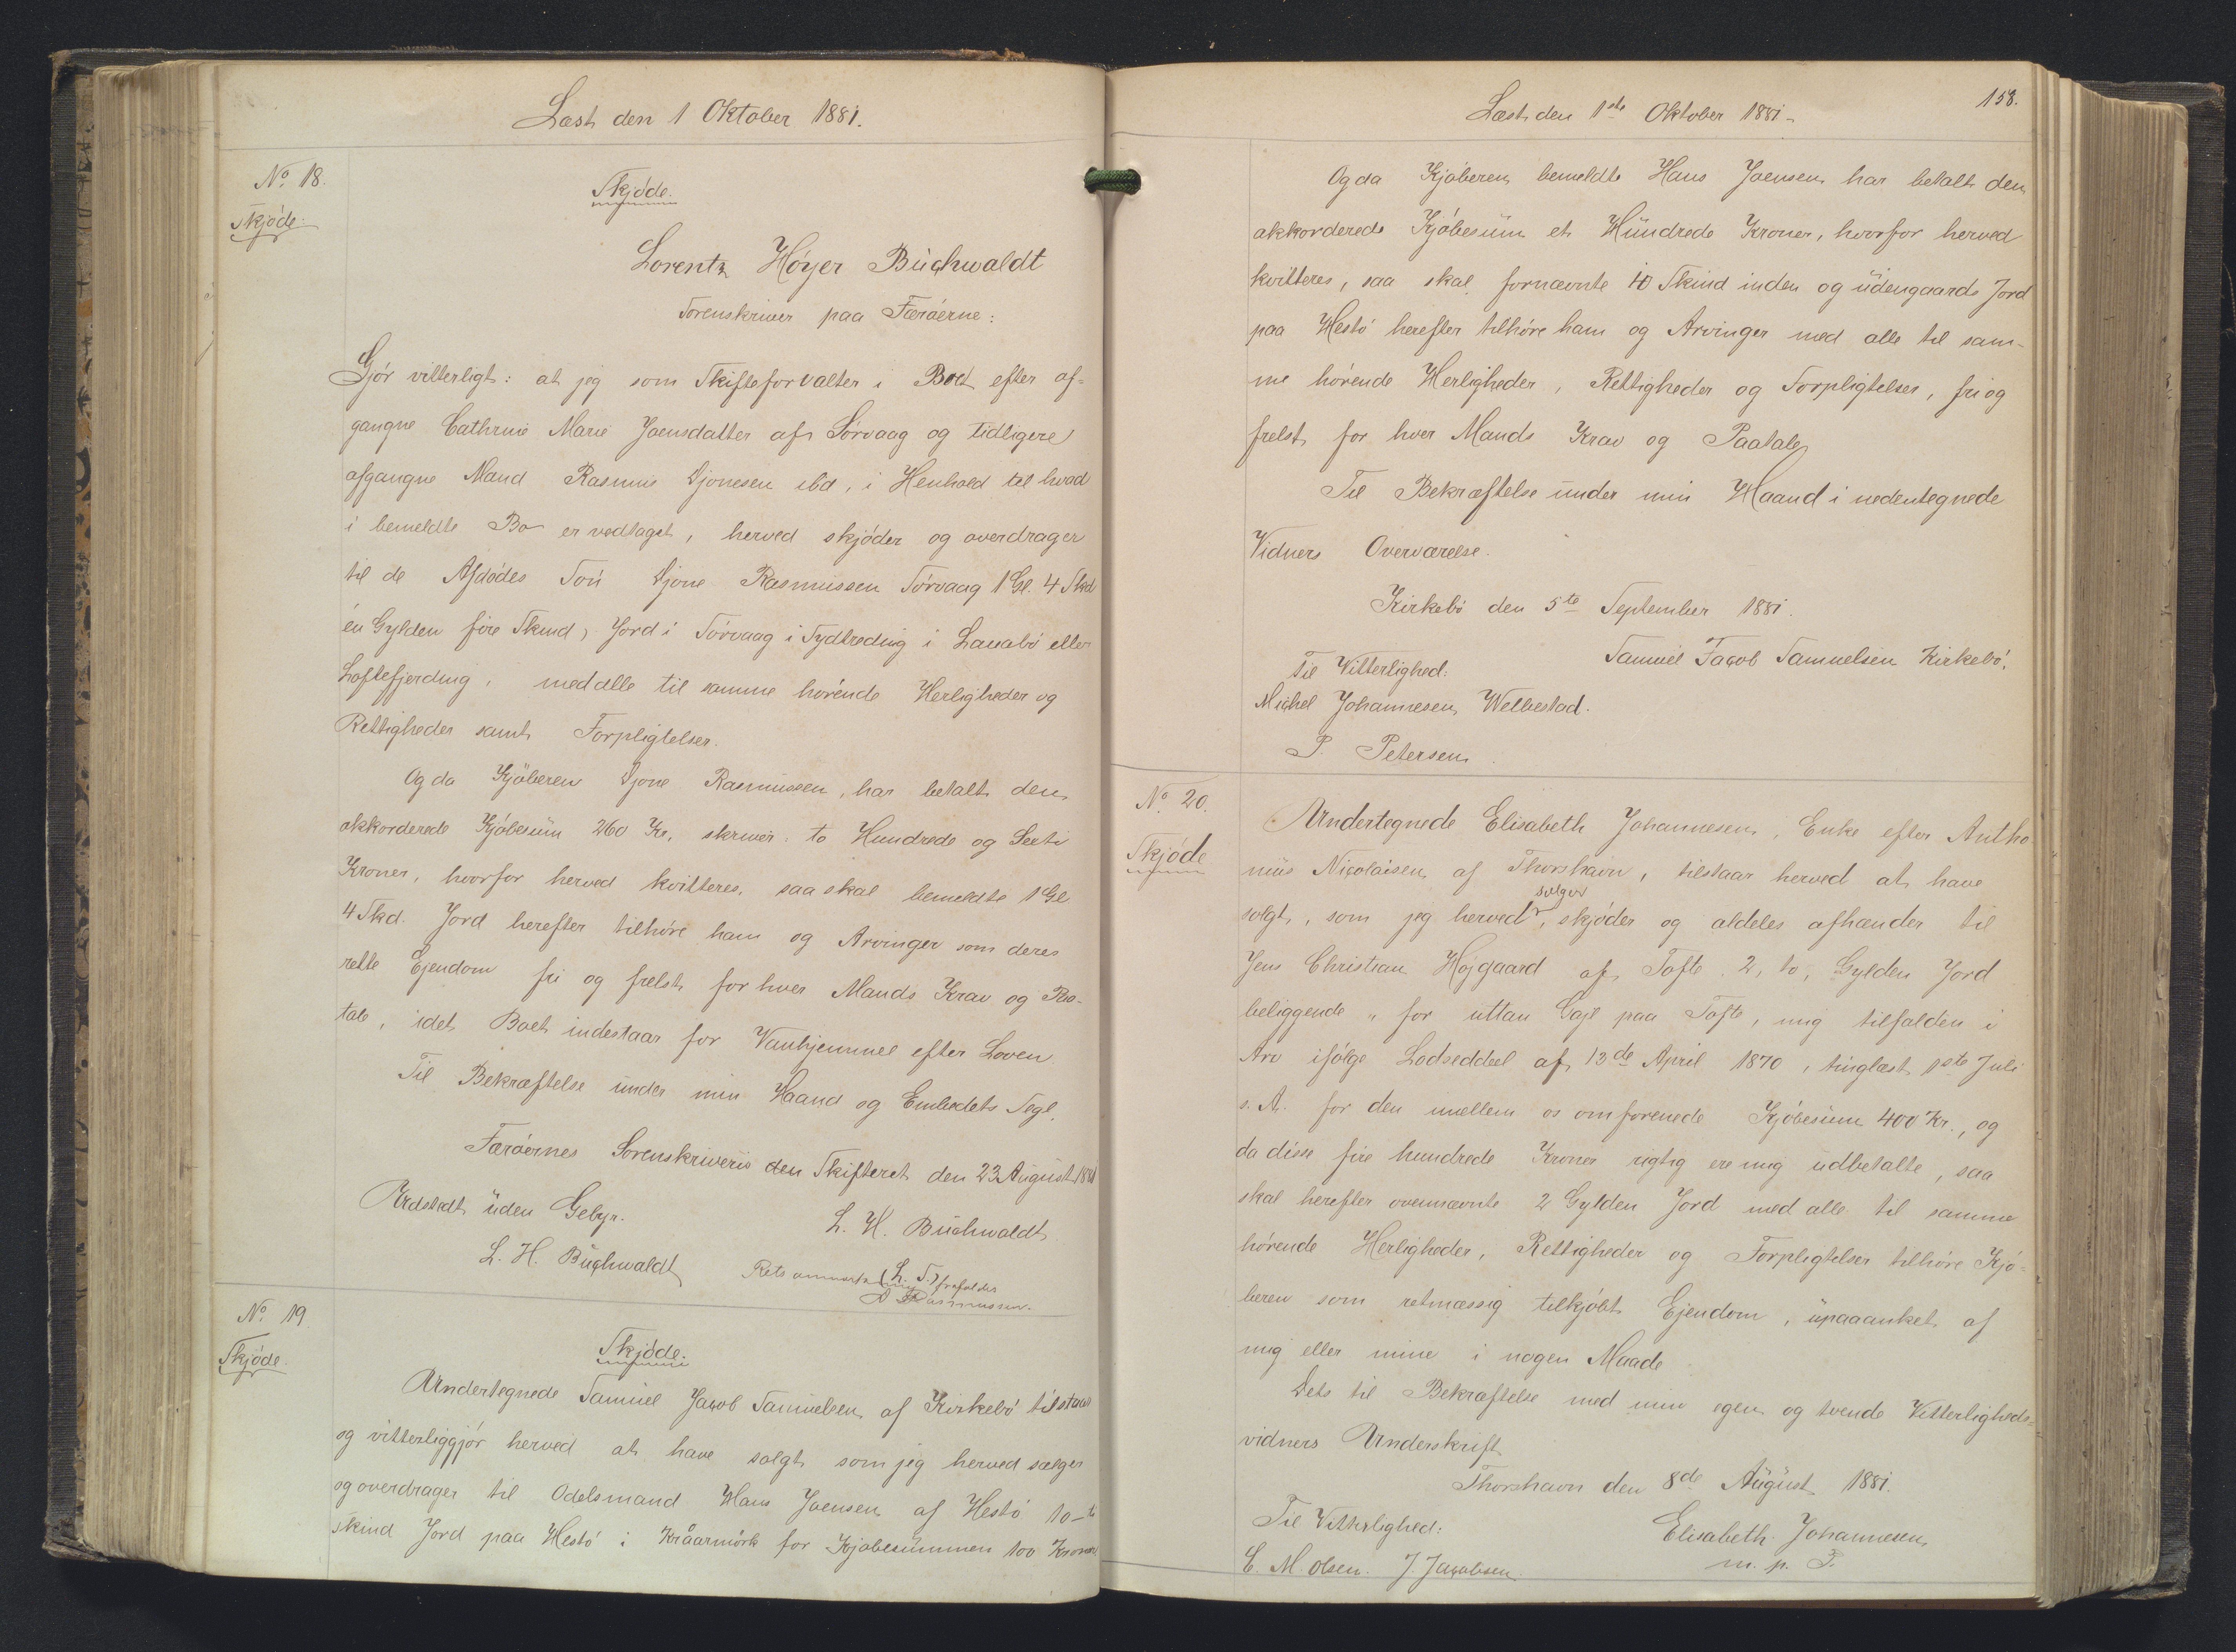 Læst den 1 Oktober 1881.
No 18.
Skjøde.
Skjøde.
Lorentz Høyer Buchwaldt
Sorenskriver paa Færøerne:
Gjør vitterligt: at jeg som Skifteforvalter i Boet efter af-
gangne Cathrine Marie Joensdatter af Sørvaag og tidligere
afgangne Mand Rasmus Djonesen ibd, i Henhold til hvad
i bemeldte Bo er vedtaget, herved skjøder og overdrager
til de Afdødes Søn Djone Rasmussen Sørvaag 1 Gl. 4 Skd
én Gylden fire Skind, Jord i Sørvaag i Sydtreding i Lauabø eller
Loftefjerding, med alle til samme hørende Herligheder og
Rettigheder samt Forpligtelser.
Og da Kjøberen Djone Rasmussen, har betalt den
akkorderede Kjøbesum 260 Kr, skriver to Hundrede og Seeti
Kroner, hvorfor herved kvitteres, saa skal bemeldte 1 Gl
4 Skd. Jord herefter tilhøre ham og Arvinger som deres
rette Ejendom fri og frelst for hver Mands Krav og Paa-
tale, idet Boet indestaar for Vanhjemmel efter Loven
Til Bekræftelse under min Haand og Embedets Segl.
Færøernes Sorenskriveri den Skifteret den 23 August 1881
Udstedt uden Gebyr.
L. H. Buchwaldt
L. H. Buchwaldt
(L. S.)
Rasmussen.
No 19.
Skjøde.
Skjøde.
Undertegnede Samuel Jacob Samuelsen af Kirkebø tilstaar
og vitterliggjør herved at have solgt som jeg herved sælger
og overdrager til Odelsmand Hans Joensen af Hestø 10-ti
skind Jord paa Hestø i Kråarmørk for Kjøbesummen 100 Kroner
Læst den 1ste Oktober 1881.
158.
Og da Kjøberen bemeldte Hans Joensen har betalt den
akkorderede Kjøbesum et Hundrede Kroner, hvorfor herved
kvitteres, saa skal fornævnte 10 Skind inden og udengaards Jord
paa Hestø herefter tilhøre ham og Arvinger med alle til sam-
me hørende Herligheder, Rettigheder og Forpligtelser, fri og
frelst for hver Mands Krav og Paatale
Til Bekræftelse under min Haand i nedentegnede
Vidners Overværelse.
Kirkebø den 5te September 1881.
Samuel Jacob Samuelsen Kirkebø.
Til Vitterlighed:
Michel Johannesen Welbestad.
P. Petersen
No 20.
Skjøde
Undertegnede Elisabeth Johannesen, Enke efter Antho-
nius Nicolaisen af Thorshavn, tilstaar herved at have
solgt, som jeg herved sælger, skjøder og aldeles afhænder til
Jens Christian Højgaard af Tofte 2, to, Gylden Jord
beliggende "for uttan Gajl paa Tofte, mig tilfalden i
Arv ifølge Lodseddel af 13de April 1870, tinglæst 1ste Juli
s. A. for den imellem os omforenede Kjøbesum 400 Kr., og
da disse fire hundrede Kroner rigtig ere mig udbetalte, saa
skal herefter ovennævnte 2 Gylden Jord med alle til samme
hørende Herligheder, Rettigheder og Forpligtelser tilhøre Kjø-
beren som retmæssig tilkjøbt Ejendom, upaaanket af
mig eller mine i nogen Maade
Dets til Bekræftelse med min egen og tvende Vitterligheds-
vidners Underskrift
Thorshavn den 8de August 1881.
Til Vitterlighed:
Elisabeth Johannesen
m. p. P.
C. M. Olsen. J. Jacobsen